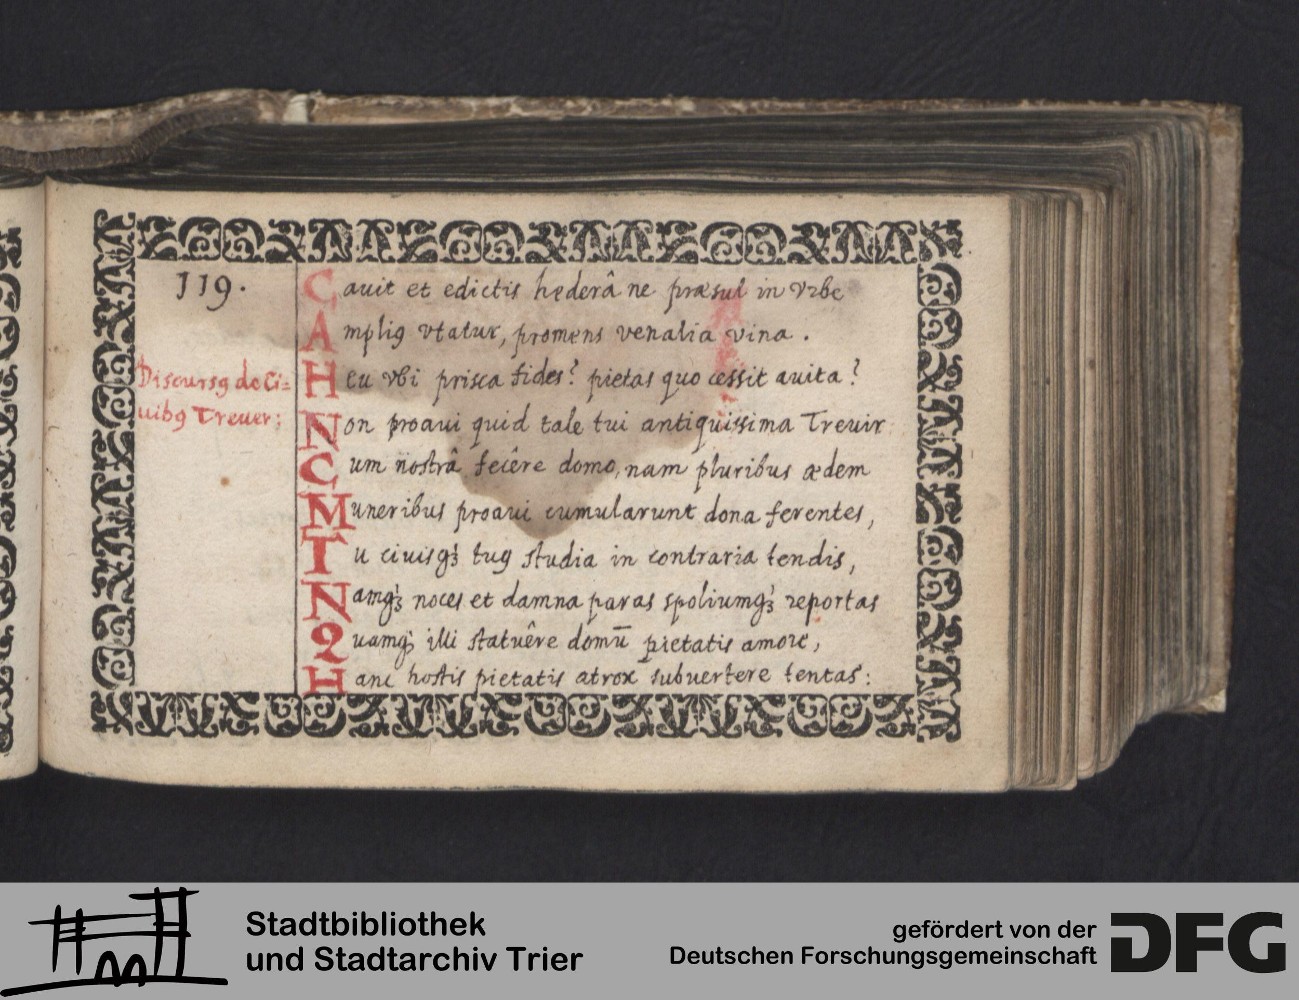 119.
Cauit et edictis hęderâ ne præsul in vrbe
Ampliꝰ vtatur, promens venalia vina.
Discursꝰ de Ci=
Heu vbi prisca fides? pietas quo cessit auita?
uibꝰ Treuer:
Non proaui quid tale tui antiquissima Treuir
Cum nostrâ fecêre domo, nam pluribus ædem
Muneribus proaui cumularunt dona ferentes,
Tu ciuisqꝫ tuꝰ studia in contraria tendis,
Namqꝫ noces et damna paras spoliumqꝫ reportas
Quamqꝫ illi statuêre domū pietatis amore,
Hanc hostis pietatis atrox subuertere tentas:
Stadtbibliothek
und Stadtarchiv Trier
gefördert von der
Deutschen Forschungsgemeinschaft
DFG